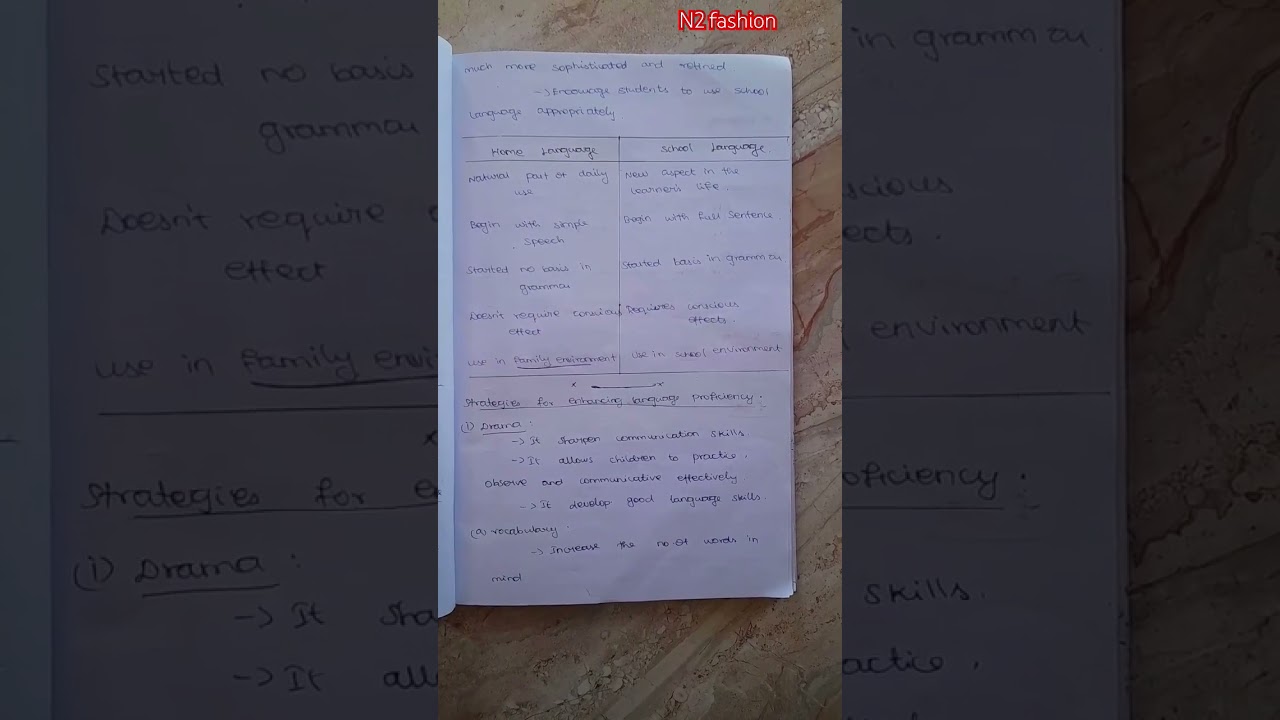 N2 fashion
much more sophisticated and refined.
-> Encourage students to use school
language appropriately
Home Language
School Language.
Natural part of daily
use
New aspect in the
learner's life.
Begin with simple
speech
Begin with full sentence.
Started no basis in
grammar
Started basis in grammar
Doesn't require conscious
effect
Requires conscious
effects.
use in family environment
Use in school environment
x x
Strategies for enhancing language proficiency.
(1) Drama:
-> It sharpen communication skills.
-> It allows children to practice,
observe and communicative effectively.
-> It develop good language skills.
(a) vocabulary.
-> Increase the no. of words in
mind